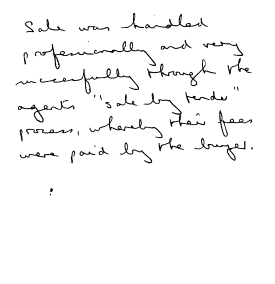 Sale was handled
professionally and very
successfully through the
agents "sale by tender"
process, whereby their fees
were paid by the buyer.